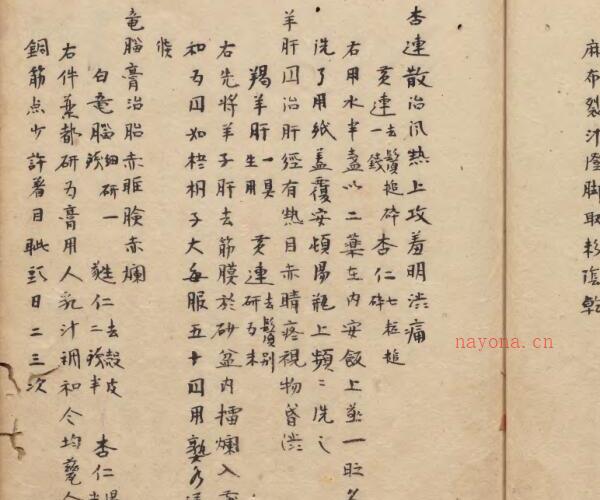 麻布裂汁隂脚取粉陰乾
杏連散治汎熱上攻羞明洪痛
黄連去鬚槌碎一錢 杏仁七粒槌碎
右用水半盞以二藥在内安飯上蒸一
洗了用紙盖覆安頓湯瓶上頻〻洗之
羊肝囙治肝經有熱目赤睛疼視物昏渋
羯羊肝一具生用 黄連去鬚別研为末
右先將羊子肝去筋膜於砂盆内擂爛入
和为囙如梧桐子大每服五十囙用熟
候
竜腦膏治胎赤眼瞼赤爛
白竜腦細研一 甤仁去殼皮二 半 杏仁
右件藥都研为膏用人乳汁調和令均
銅筋点少許着目眦 日二三次
nayona.cn